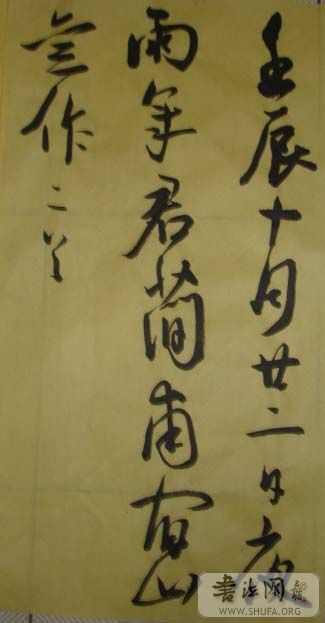 壬辰十月廿二日夜
雨君簡甫宿山
作二首
書法网
WWW.SHUFA.ORG